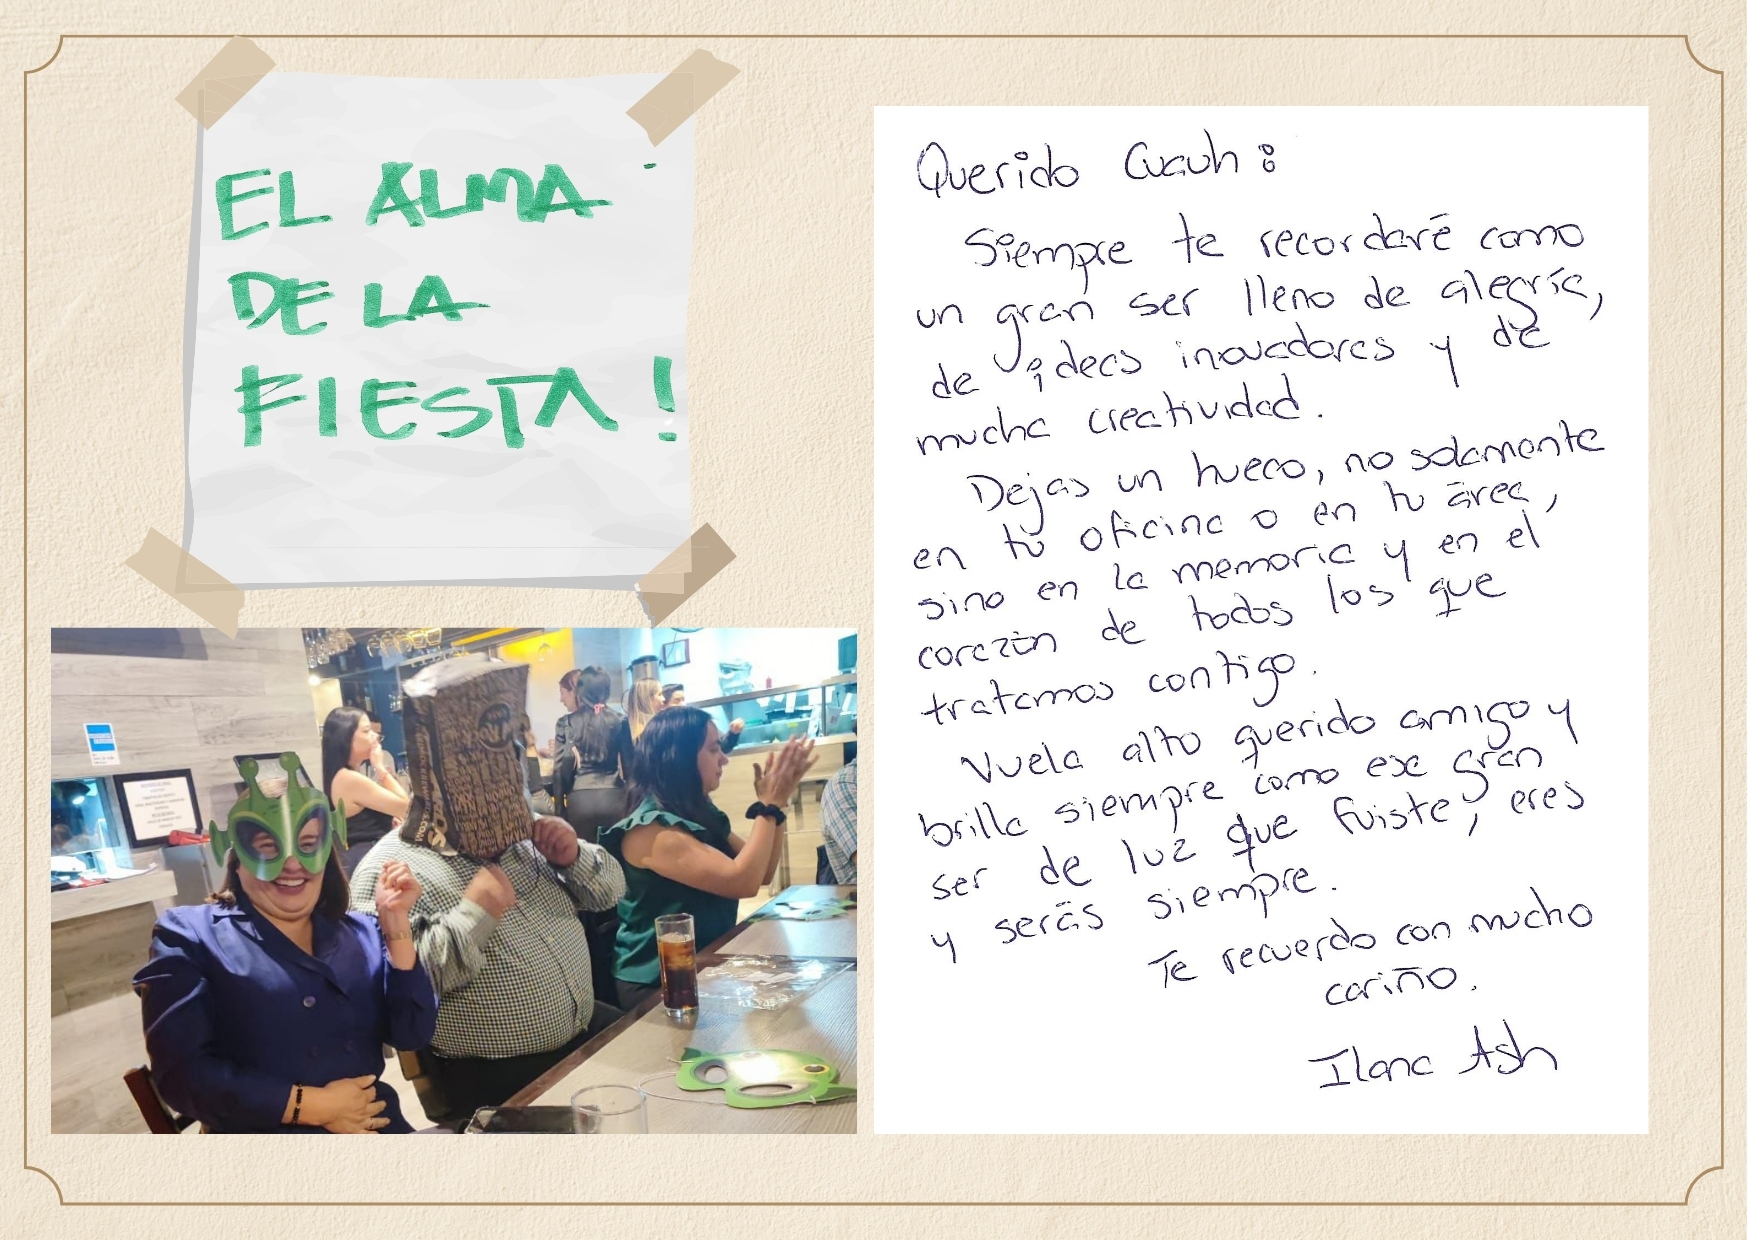 EL ALMA
DE LA
FIESTA!
Querido Cuauh:
Siempre te recordaré como
un gran ser lleno de alegría,
de ideas inovadoras y de
mucha creatividad.
Dejas un hueco, no solamente
en tu oficina o en tu área,
sino en la memoria y en el
corazón de todos los que
tratamos contigo.
Vuela alto querido amigo y
brilla siempre como ese gran
ser de luz que fuiste, eres
y serás siempre.
Te recuerdo con mucho
cariño.
Ilana Ash